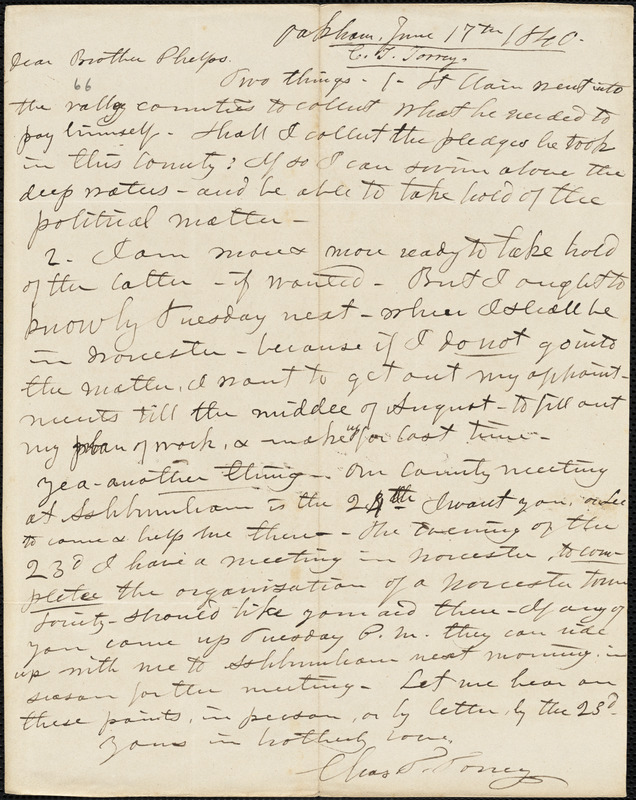 Oakham, June 17th 1840.
C. T. Torrey.
Dear Brother Phelps.
66
Two things - 1 - St Clair went into
the vally counties to collect what he needed to
pay himself - Shall I collect the pledges he took
in this County? If so I can swim above the
deep waters - and be able to take hold of the
political matter -
2 - I am more & more ready to take hold
of the latter - if wanted - But I ought to
know by Tuesday next - when I shall be
in Worcester - because if I do not go into
the matter, I want to get out my appoint-
ments till the middle of August - to fill out
my plan of work, & make up for lost time -
Yea - another thing - Our County meeting
at Ashburnham is the 24th I want you, or Lee
to come & help me there - The evening of the
23d I have a meeting in Worcester, to com-
plete the organization of a Worcester Town
Society - should like your aid there - If any of
you come up Tuesday P.M. they can ride
up with me to Ashburnham next morning, in
season for the meeting - Let me hear on
these points, in person, or by letter, by the 23d -
Yours in brotherly love,
Chas T. Torrey